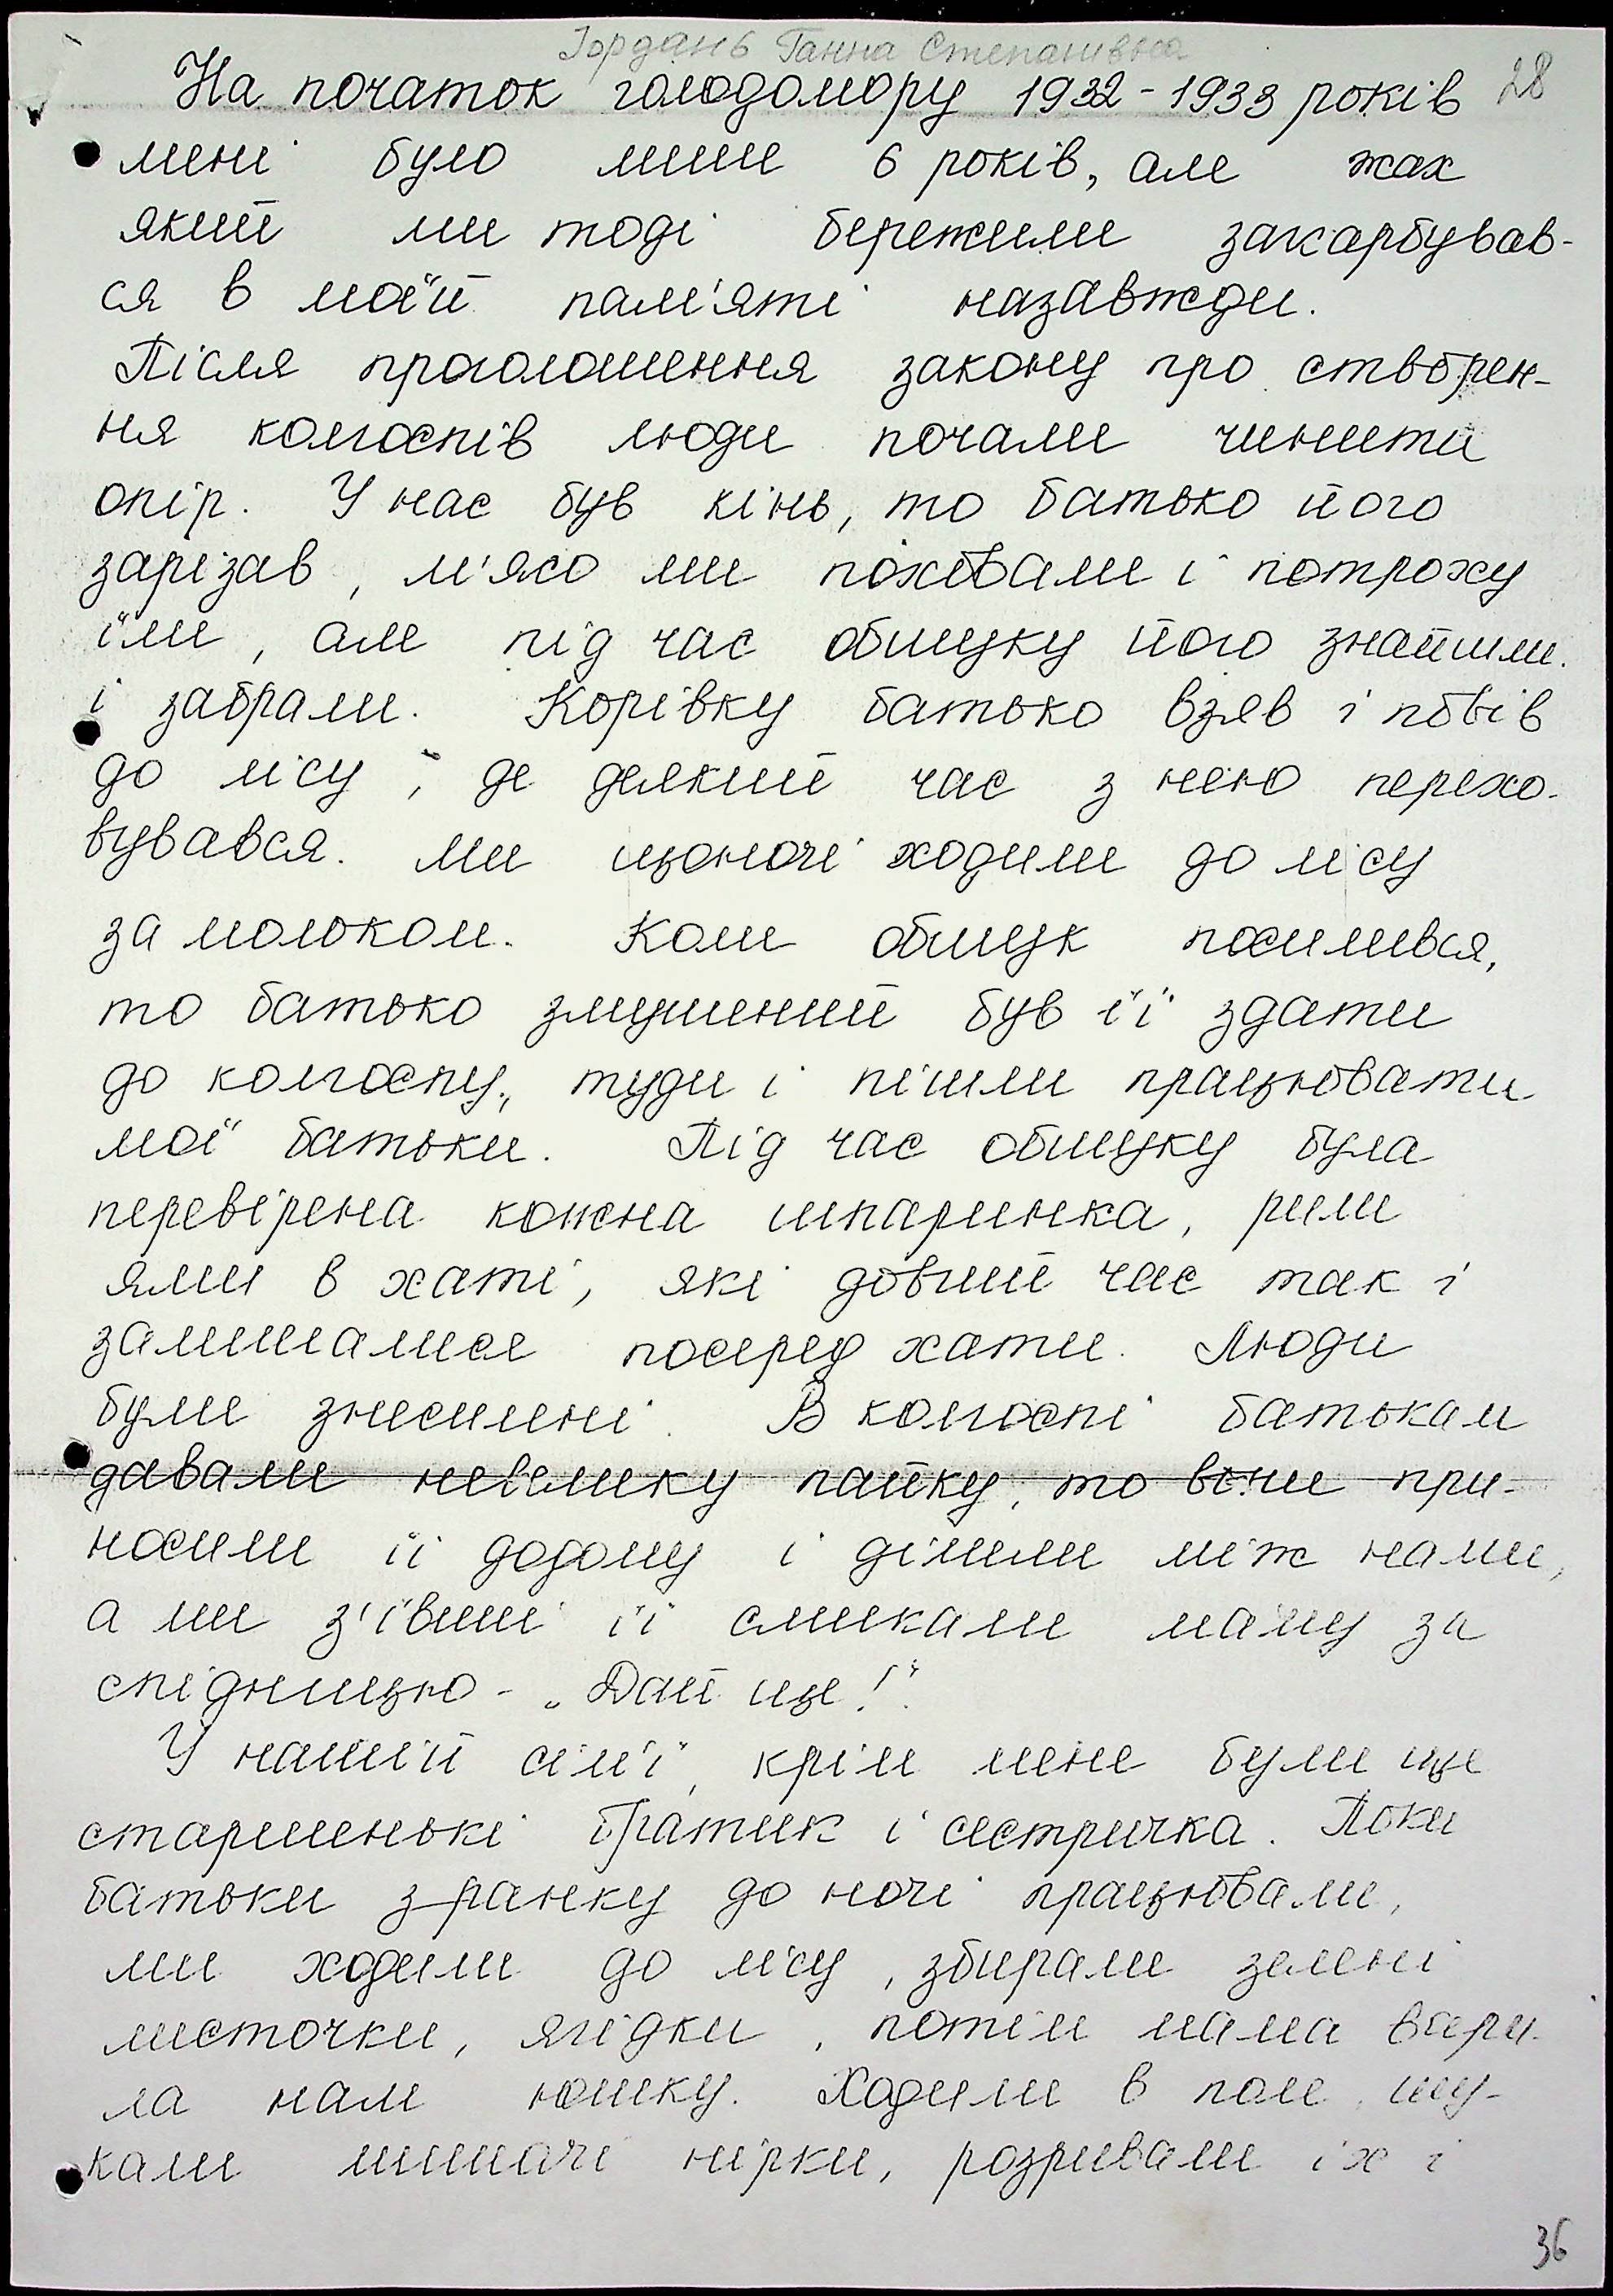 Іордань Ганна Степанівна
28
На початок голодомору 1932-1933 років
мені було лише 6 років, але жах
який ми тоді бережили закарбував-
ся в моїй пам'яті назавжди.
Після проголошення закону про створен-
ня колгоспів люди почали чинити
опір. У нас був кінь, то батько його
зарізав, м'ясо ми поховали і потроху
їли, але під час обшуку його знайшли
і забрали. Корівку батько взяв і повів
до лісу, де деякий час з нею перехо-
вувався. Ми щоночі ходили до лісу
за молоком. Коли обшук посилився,
то батько змушений був її здати
до колгоспу, туди і пішли працювати
мої батьки. Під час обшуку була
перевірена кожна шпаринка, рили
ями в хаті, які довгий час так і
залишалися посеред хати. Люди
були знесилені. В колгоспі батькам
давали невелику пайку, то вони при-
носили її додому і ділили між нами,
а ми з'ївши її смикали маму за
спідницю - „Дай ще!"
У нашій сім'ї, крім мене були ще
старшенькі братик і сестричка. Поки
батьки з ранку до ночі працювали,
ми ходили до лісу, збирали зелені
листочки, ягідки, потім мама вари-
ла нам юшку. Ходили в поле, шу-
кали мишачі нірки, розривали їх і
36